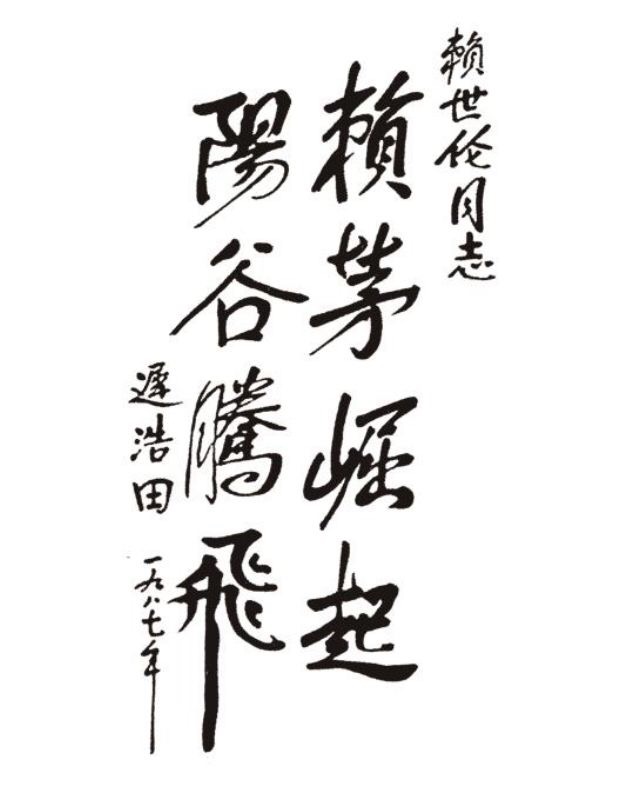 賴世伦同志
賴茅崛起
陽谷騰飛
遲浩田
一九八七年